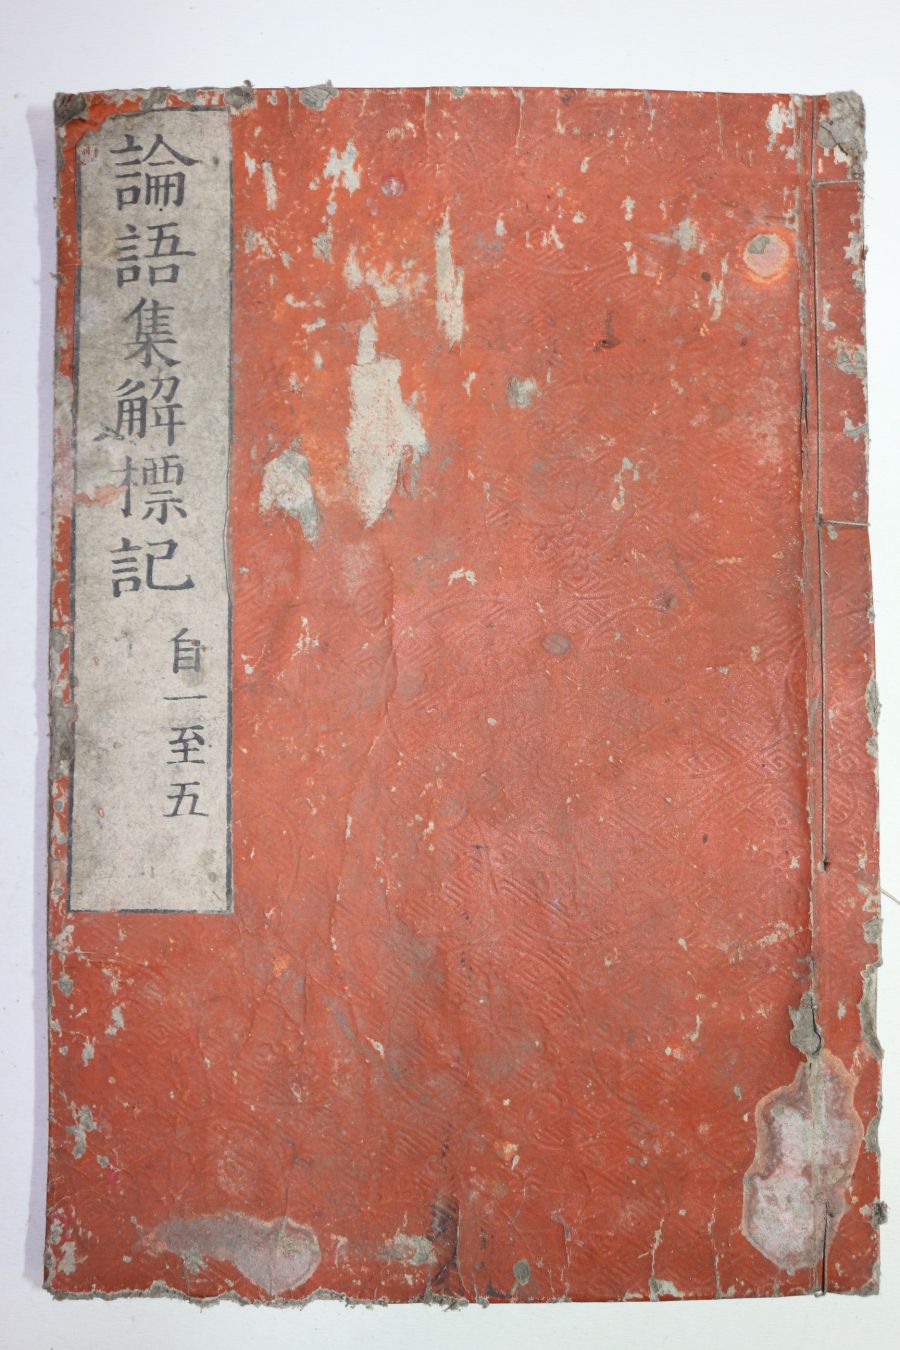 論語集解標記
自一至五